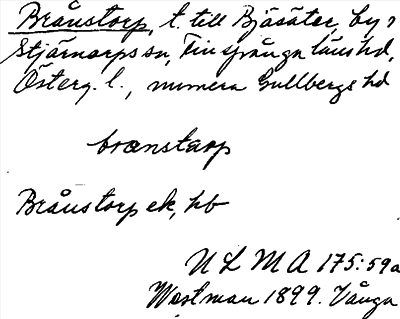 Brånstorp, t. till Bjäsäter, by i
Stjärnorps sn, Finspånga läns hd,
Österg. l., numera Gullbergs hd
branstarp
Brånstorp ek, hb
ULMA 175:59a
Westman 1899. Vånga